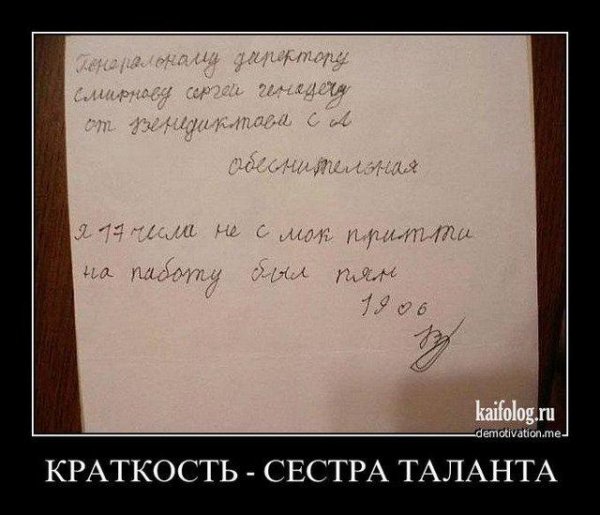 Генеральному директору
Смирнову сергей генадечу
от Венедиктова С А
обеснительная
я 17 числа не с мок притти
на паботу был пян
19 06
kaifolog.ru
demotivation.me
КРАТКОСТЬ - СЕСТРА ТАЛАНТА